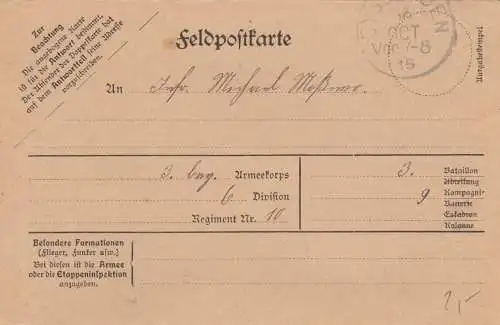 Zur
Beachtung
Die anhängende Karte
ist für die Antwort bestimmt.
Der Absender der Doppelkarte hat
auf dem Antwortteil seine Adresse
vorzuschreiben.
Feldpostkarte
OCT
Vor 7-8
15
Ausgabestempel
An Infr. Michael
3. bay. Armeekorps
6 Division
Regiment Nr. 10
3. Bataillon
Abteilung
9 Kompagnie
Batterie
Eskadron
Kolonne
Besondere Formationen
(Flieger, Funker usw.)
Bei diesen ist die Armee
oder die Etappeninspektion
anzugeben.
2,-